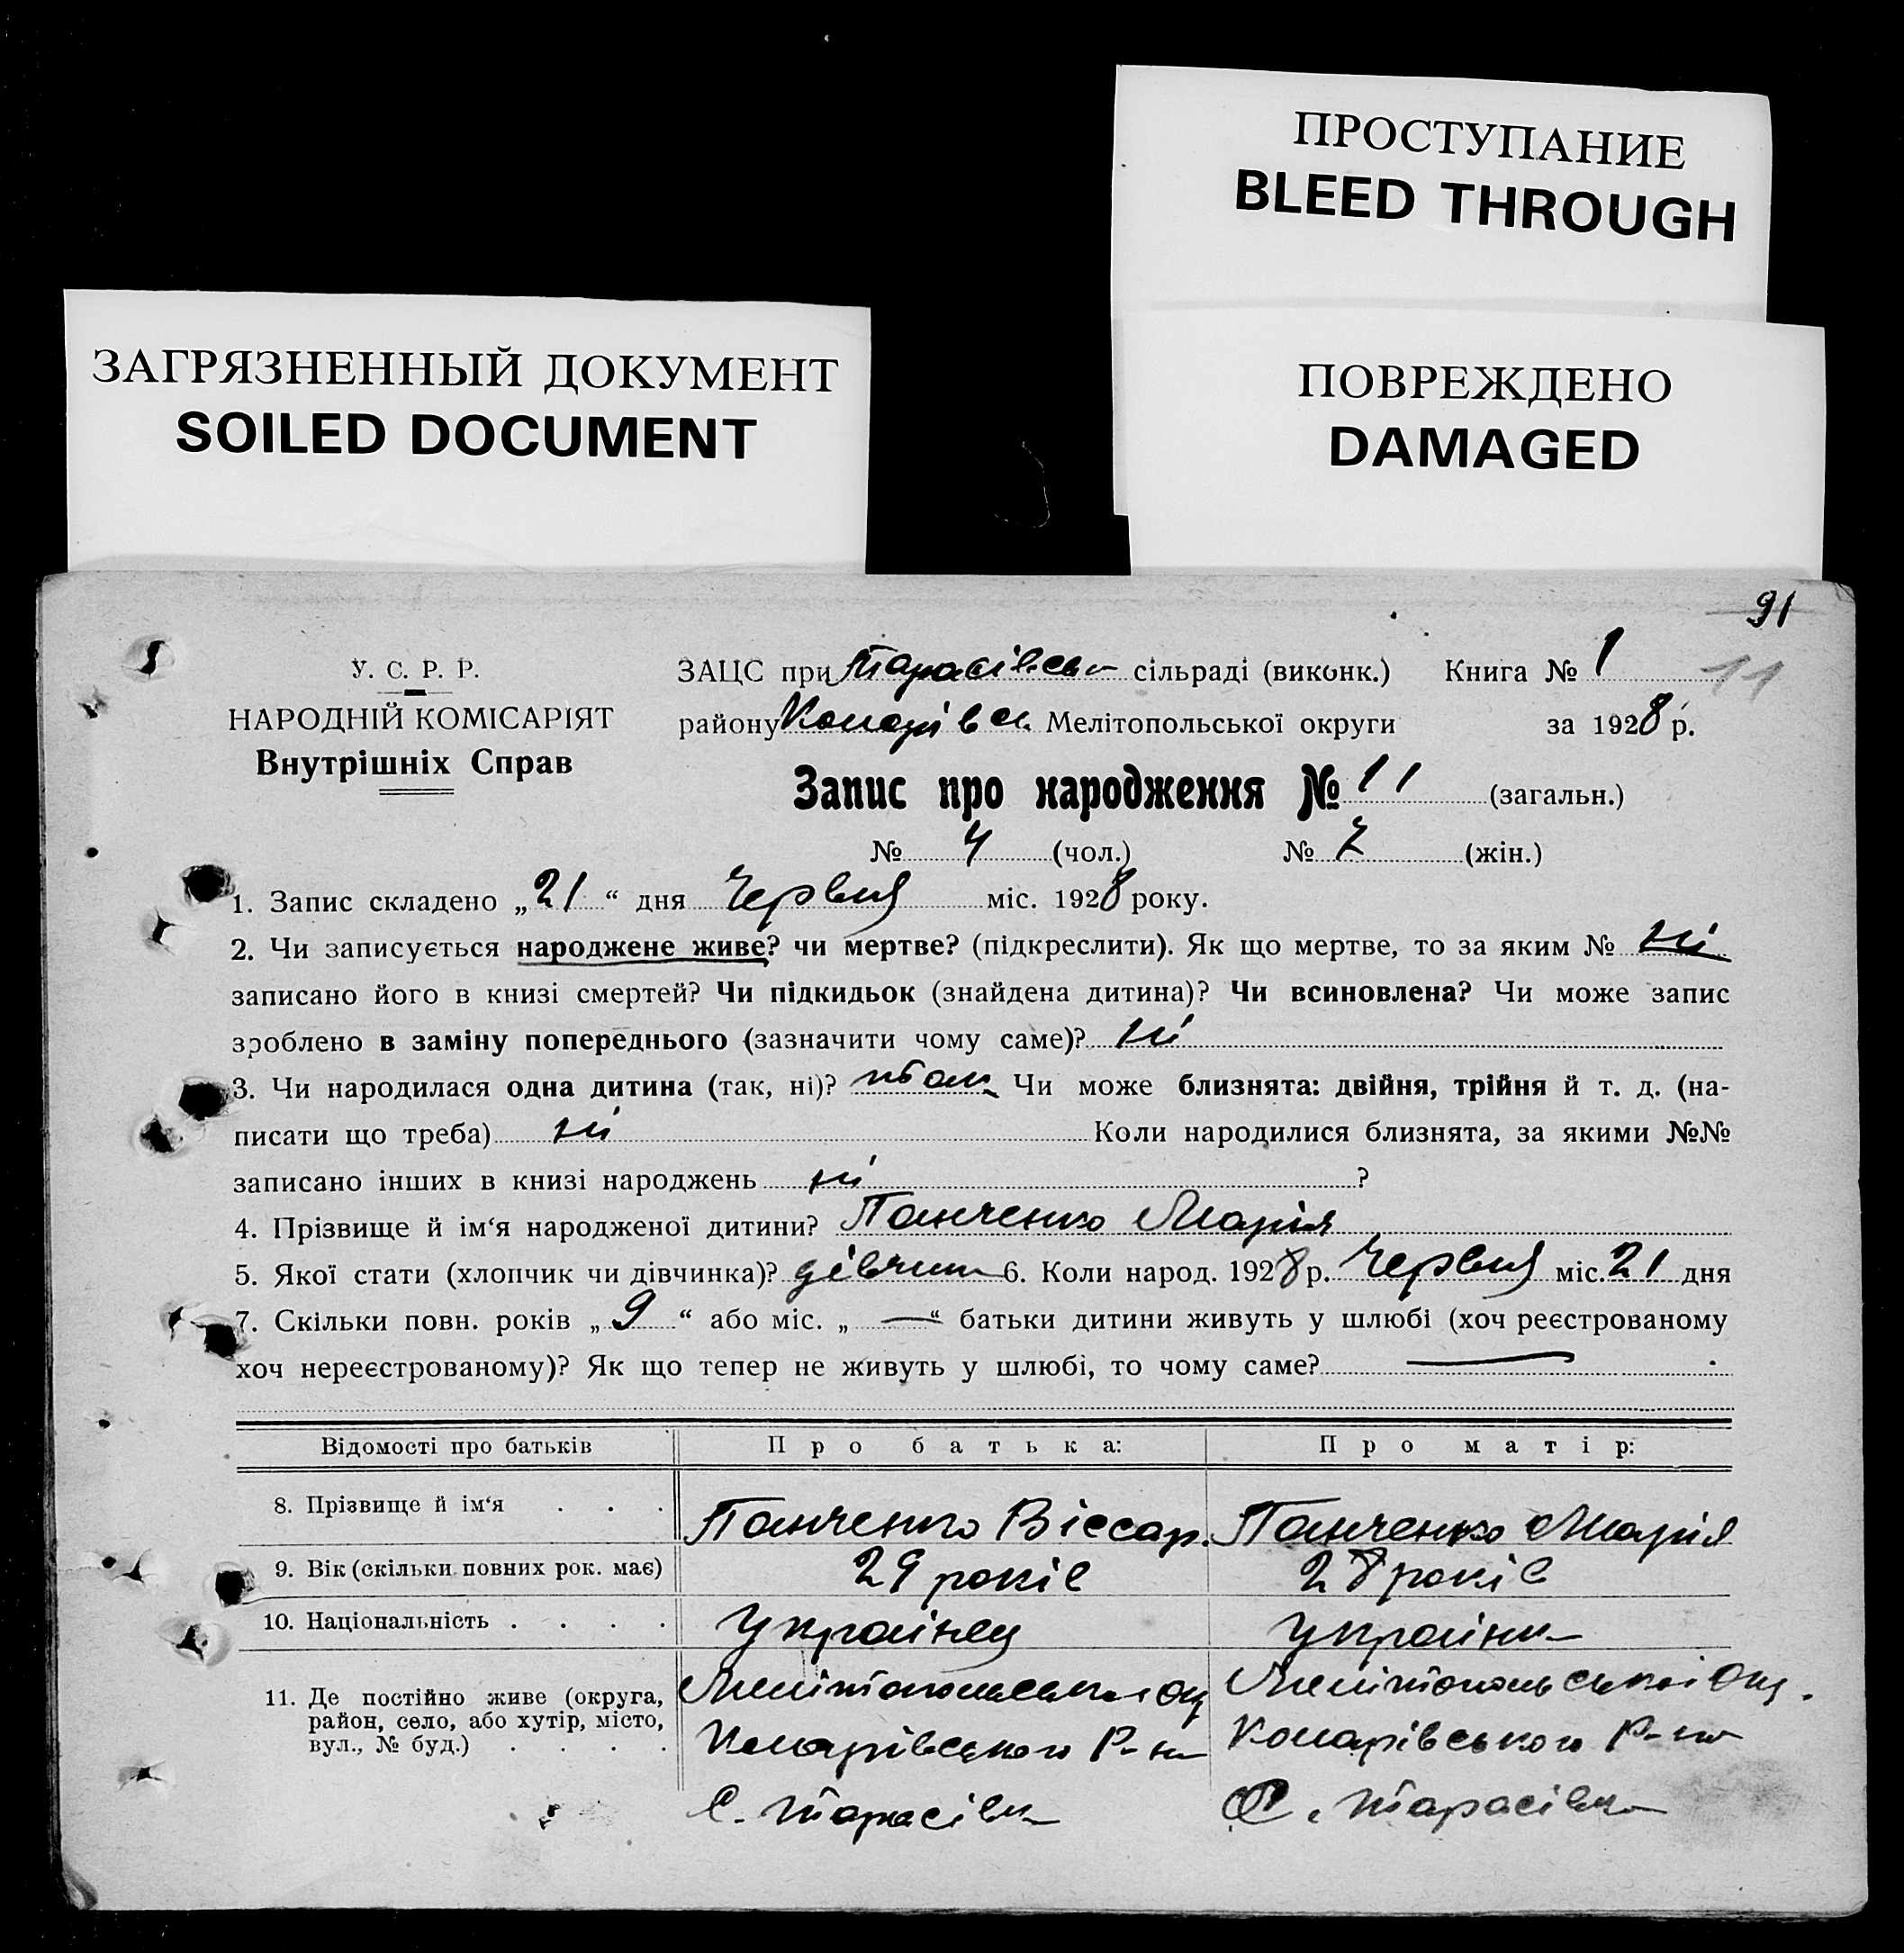 ПРОСТУПАНИЕ
BLEED THROUGH
ЗАГРЯЗНЕННЫЙ ДОКУМЕНТ
SOILED DOCUMENT
ПОВРЕЖДЕНО
DAMAGED
91
У. С. Р. Р.
НАРОДНІЙ КОМІСАРІЯТ
Внутрішніх Справ
ЗАЦС при Тарасівськ сільраді (виконк.) Книга № 1 11
району Мелітопольської округи за 1928 р.
Запис про народження № 11 (загальн.)
№ 4 (чол.) № 7 (жін.)
1. Запис складено „21“ дня Червня міс. 1928 року.
2. Чи записується народжене живе? чи мертве? (підкреслити). Як що мертве, то за яким № ні
записано його в книзі смертей? Чи підкидьок (знайдена дитина)? Чи всиновлена? Чи може запис
зроблено в заміну попереднього (зазначити чому саме)? ні
3. Чи народилася одна дитина (так, ні)? так Чи може близнята: двійня, трійня й т. д. (на-
писати що треба) ні Коли народилися близнята, за якими №№
записано інших в книзі народжень ні ?
4. Прізвище й ім‘я народженої дитини? Панченко Марія
5. Якої стати (хлопчик чи дівчинка)? дівчин 6. Коли народ. 1928 р. Червня міс. 21 дня
7. Скільки повн. років „9“ або міс. „—“ батьки дитини живуть у шлюбі (хоч реєстрованому
хоч нереєстрованому)? Як що тепер не живуть у шлюбі, то чому саме? —
Відомості про батьків Про батька: Про матір:
8. Прізвище й ім‘я . . . Панченко Віссар. Панченко Марія
9. Вік (скільки повних рок. має) 29 років 28 років
10. Національність . . . . Українец Українка
11. Де постійно живе (округа, район, село, або хутір, місто, вул., № буд.) . . . . Мелітопольської Окр Мелітопольської Окр.
Комарівського Р-на Комарівського Р-на
С. Тарасівка С. Тарасівка